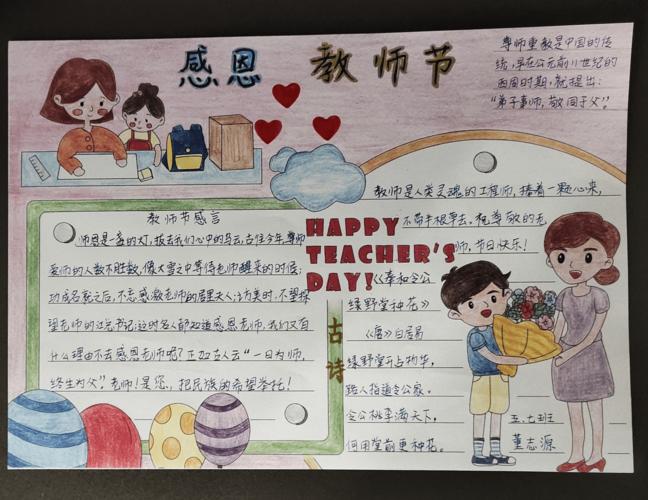 感恩 教师节
尊师重教是中国的传
统,早在公元前11世纪的
西周时期,就提出:
“弟子事师,敬同于父”。
教师是人类灵魂的工程师,捧着一颗心来,
不带半根草去。祝尊敬的老
师,节日快乐!
教师节感言
师恩是一盏的灯,拔去我们心中的乌云,古往今年,尊师
爱师的人数不胜数,像大雪之中等待老师醒来的时候;
功成名就之后,不忘感激老师的居里夫人;
望老师的
什么理由不去感恩老师呢?正如古人云“一日为师,
终生为父”。老师!是您,把民族的希望举托!
HAPPY
TEACHER'S
DAY!
古诗
《奉和令公
绿野堂种花》
《唐》白居易
绿野堂开占物华,
路人指道令公家。
令公桃李满天下,
何用堂前更种花。
五.七班
董志源